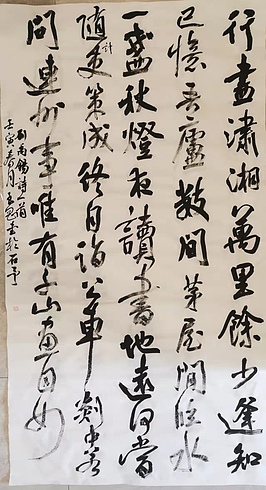 行盡瀟湘萬里餘少逢知
己憶吾廬數間茅屋閒臨水
一盞秋燈夜讀書地遠何當
隨計吏策成終自詣公車剡中若
問連州事唯有千山畫不如
劉禹錫詩一首
壬寅春月書於石